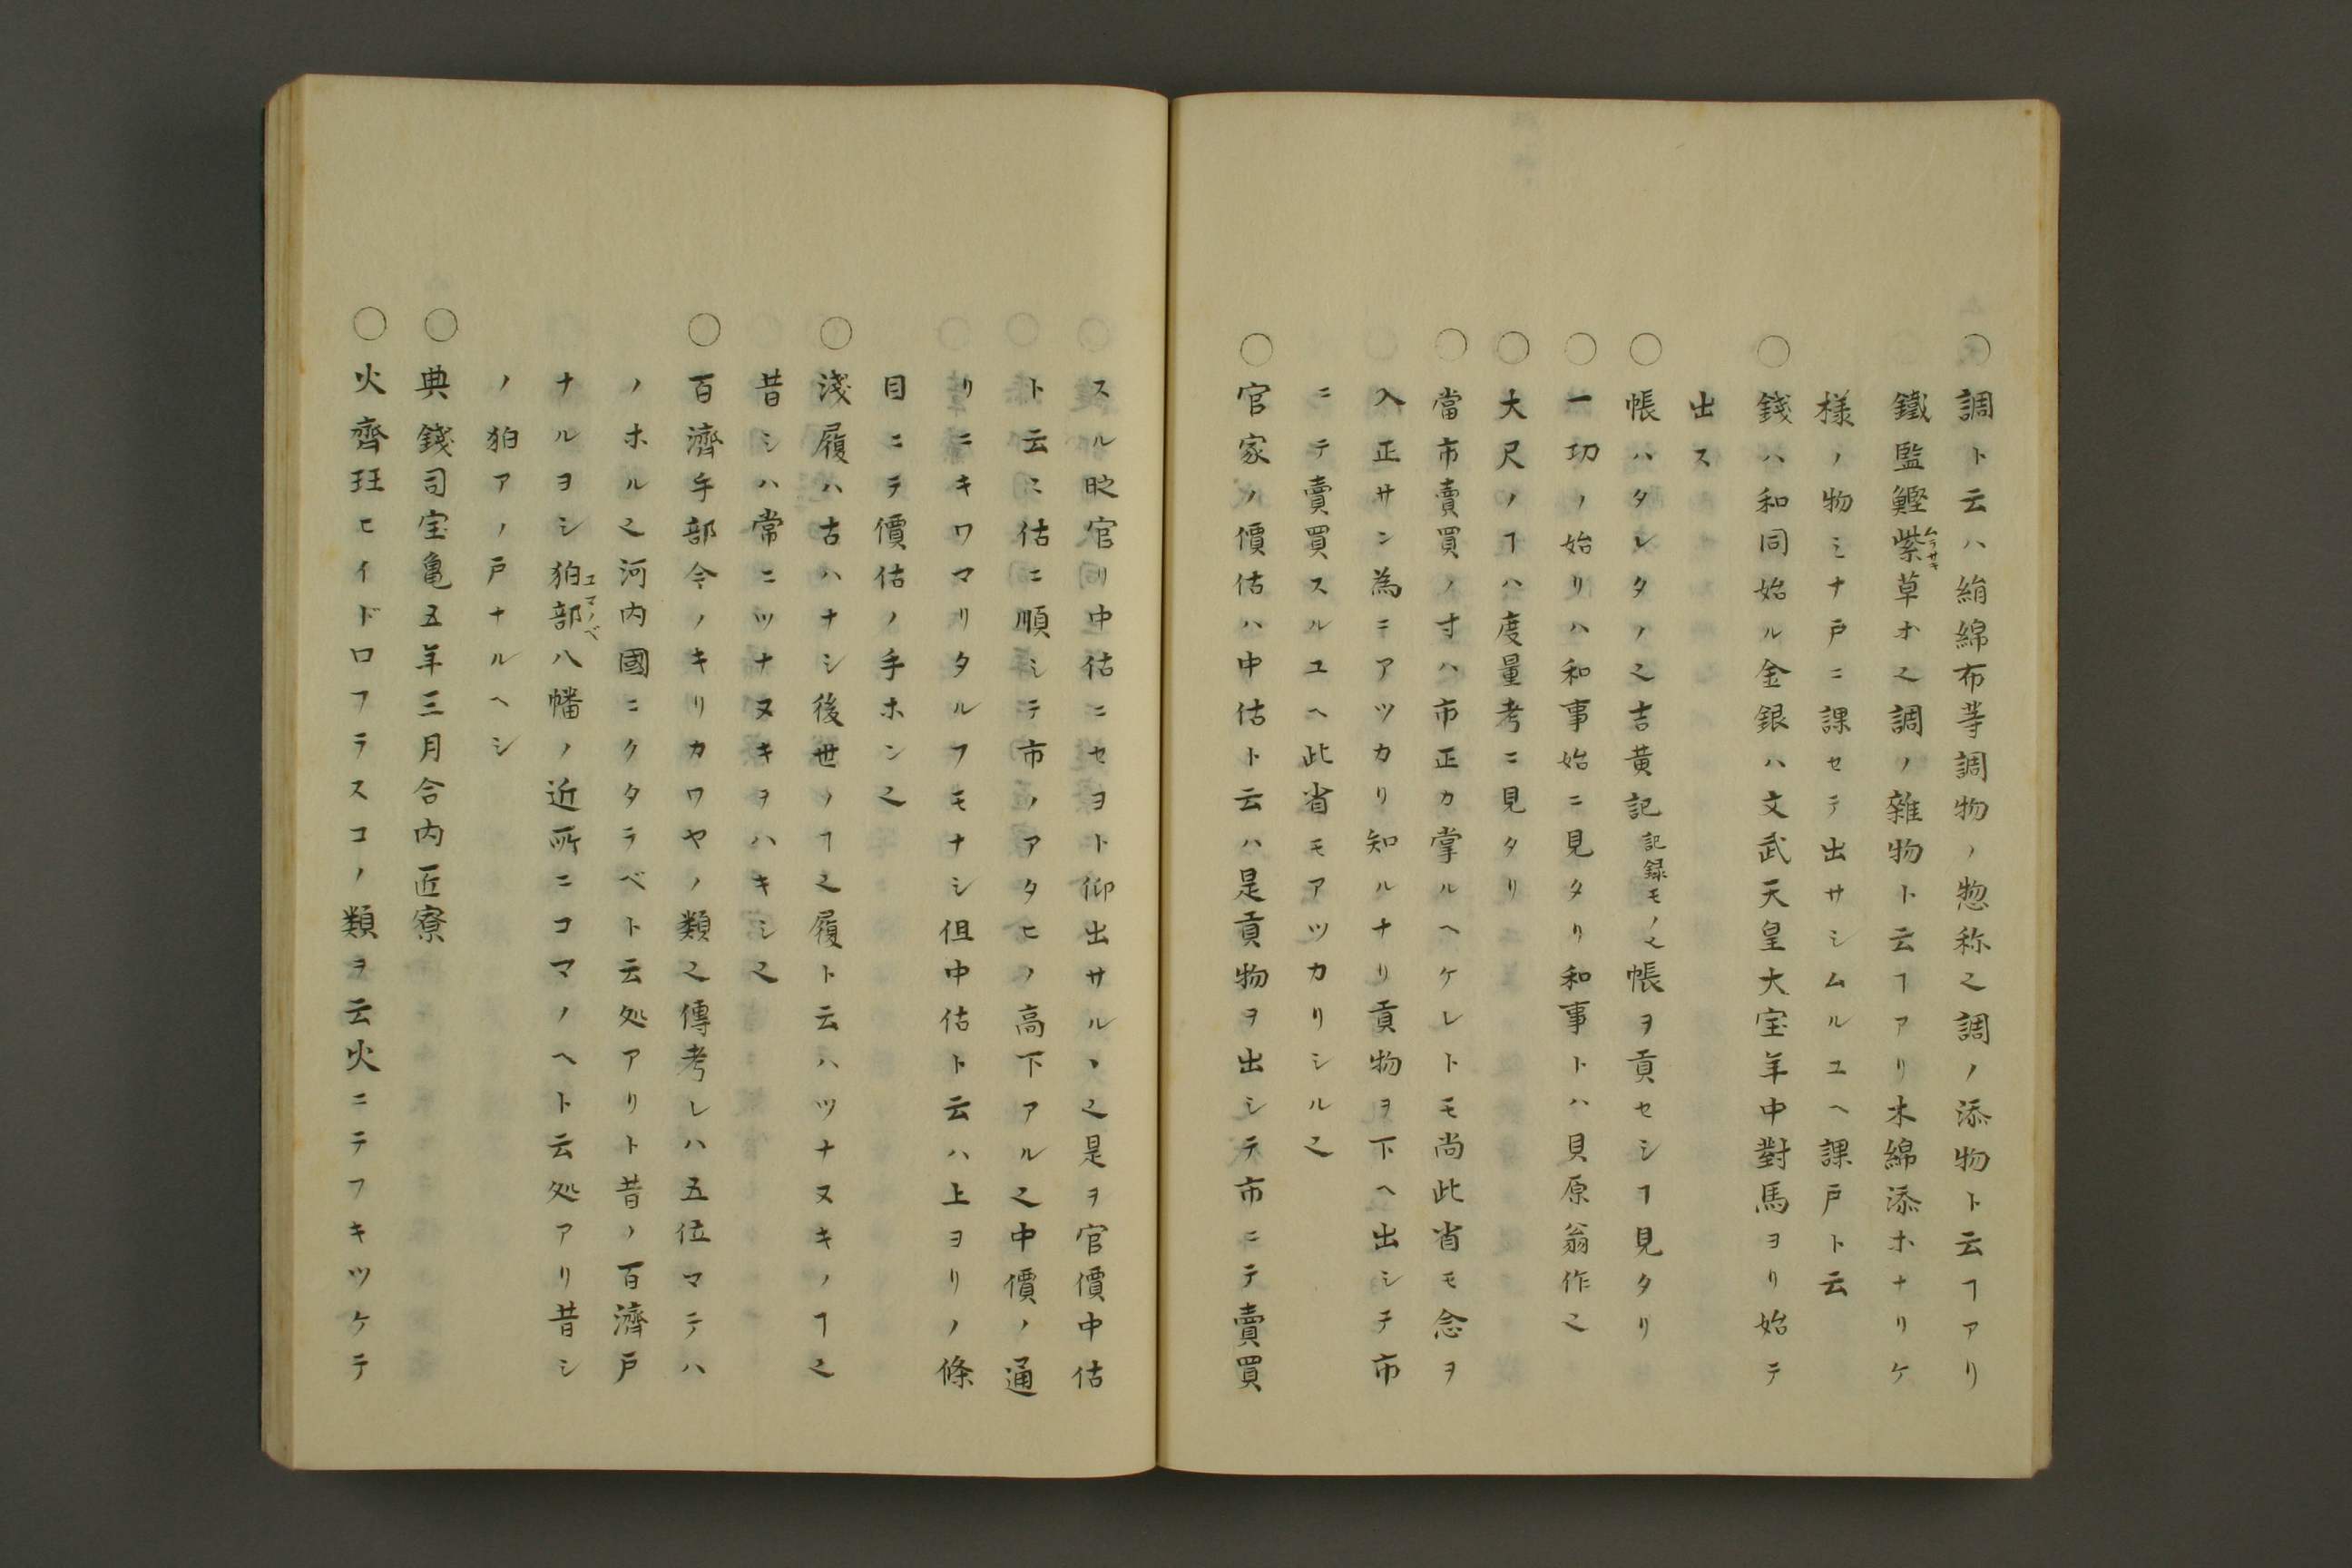 ○調ト云ハ絹綿布等調物ノ惣称之調ノ添物ト云ヿアリ
鐵監鰹紫草ホ之調ノ雜物ト云ヿアリ木綿添ホナリケ
ムラサキ
様ノ物ミナ戸ニ課セテ出サシムルユヘ課戸ト云
○錢ハ和同始ル金銀ハ文武天皇大宝年中對馬ヨリ始テ
出ス
○帳ハタレタノ之吉黄記記録モノ之帳ヲ貢セシヿ見タリ
○一功ノ始リハ和事始ニ見タリ和事トハ貝原翁作之
○大尺ノヿハ度量考ニ見タリ
○當市賣買ノ寸ハ市正カ掌ルヘケレトモ尚此省モ念ヲ
入正サン為ニアツカリ知ルナリ貢物ヲ下ヘ出シテ市
ニテ賣買スルユヘ此省モアツカリシル之
○官家ノ價估ハ中估ト云ハ是貢物ヲ出シテ市ニテ賣買
スル时官リ中估ニセヨト仰出サルヽ之是ヲ官價中估
ト云ニ估ニ順シテ市ノアタヒノ高下アル之中價ノ通
リニキワマリタルフモナシ但中估ト云ハ上ヨリノ條
目ニテ價估ノ手ホン之
○淺履ハ古ハナシ後世ノヿ之履ト云ハツナヌキノヿ之
昔シハ常ニツナヌキヲハキシ之
○百濟手部令ノキリカワヤノ類之傳考レハ五位マテハ
ノホル之河内國ニクタラベト云処アリト昔ノ百濟戸
ナルヲシ狛部八幡ノ近所ニコマノヘト云処アリ昔シ
コマノベ
ノ狛アノ戸ナルヘシ
○典錢司宝亀五年三月合内匠寮
○火齊珏ヒイドロフラスコノ類ヲ云火ニテフキツケテ